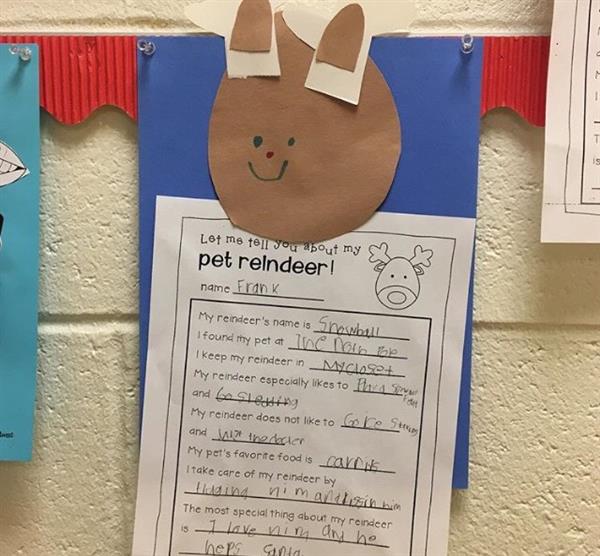 Let me tell you about my
pet reindeer!
name Frank
My reindeer's name is Snowball
I found my pet at The Norh
I keep my reindeer in My closet
My reindeer especially likes to
and Go Sledding
My reindeer does not like to Go ice
and
My pet's favorite food is carrits
I take care of my reindeer by
him and him
The most special thing about my reindeer
is I love him and he
heps Santa